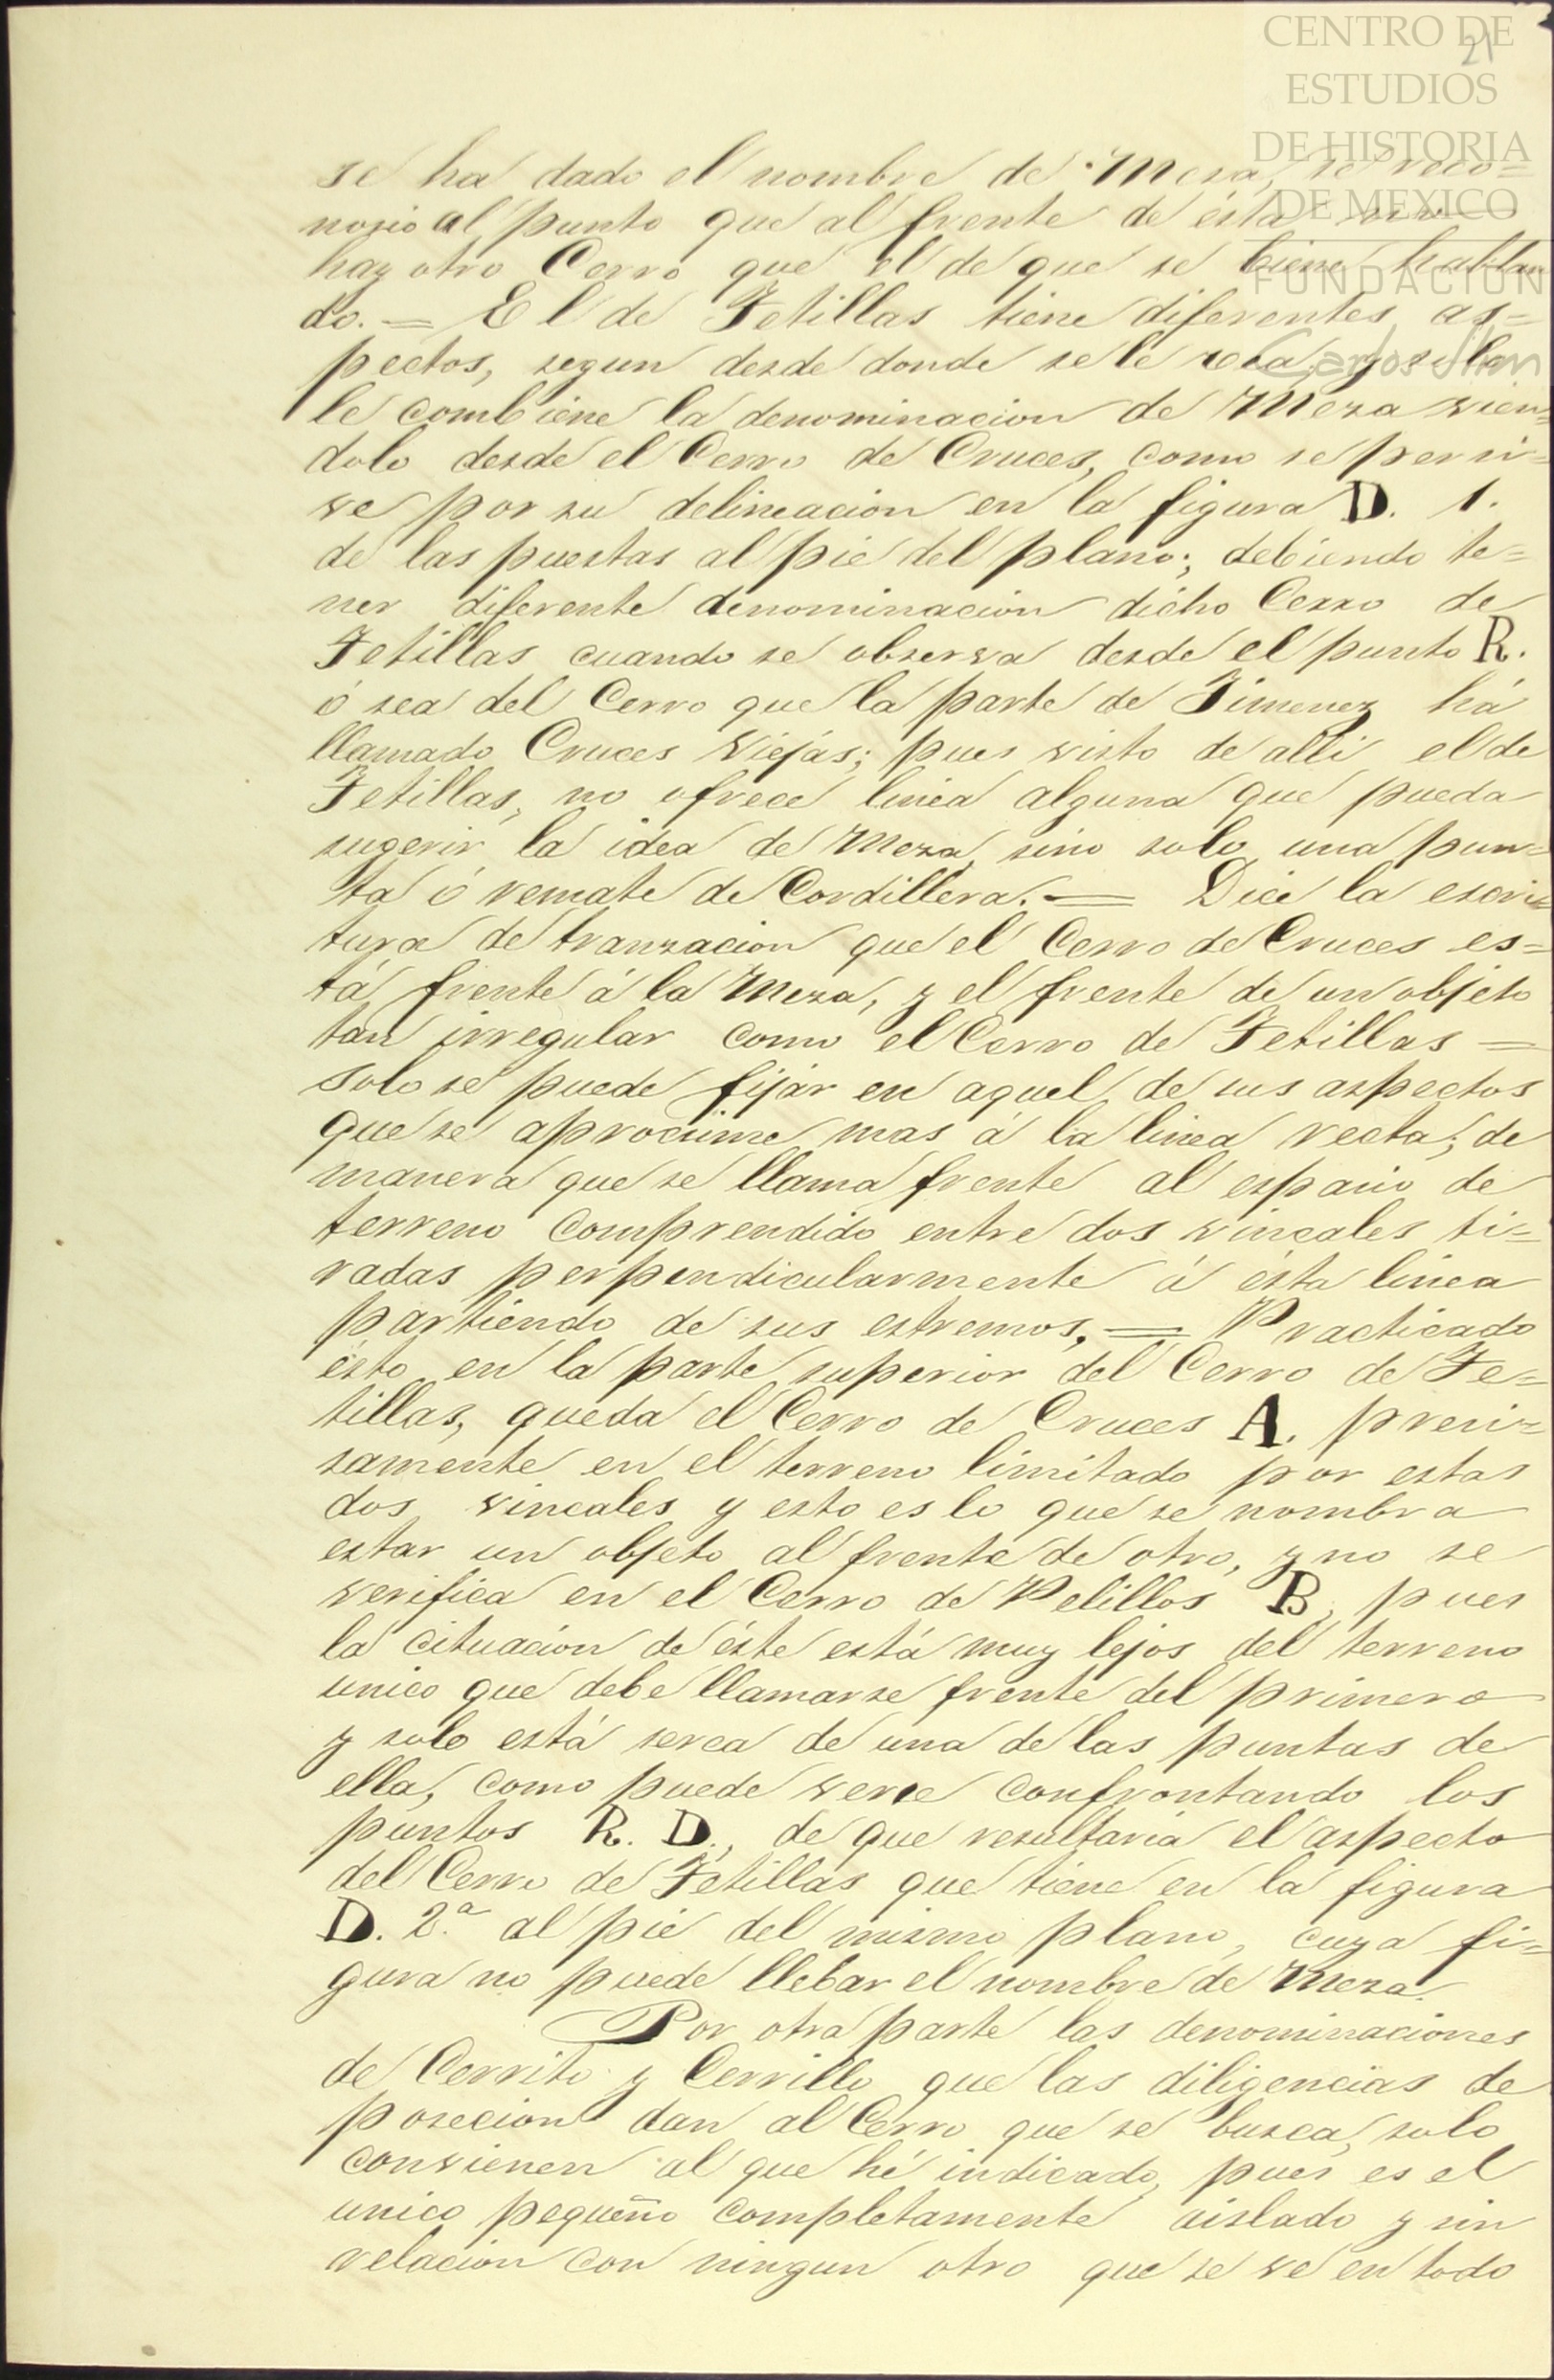 CENTRO DE
ESTUDIOS
DE HISTORIA
DE MEXICO
FUNDACIÓN
Carlos Slim
21
se ha dado el nombre de Mesa, se reco=
nosio al punto que al frente de ésta no
hay otro Cerro que el de que se biene hablan
do. = El de Tetillas tiene diferentes as=
pectos, segun desde donde se le vea, y solo
le combiene la denominacion de Meza vien=
dolo desde el Cerro de Cruces, como se persi=
ve por su delineacion en la figura D. 1.
de las puestas al pie del plano; debiendo te=
ner diferente denominacion dicho Cerro de
Tetillas cuando se observa desde el punto R.
ó sea del Cerro que la parte de Jimenez há
llamado Cruces Viejas; pues visto de alli el de
Tetillas, no ofrece linea alguna que pueda
sugerir la idea de Meza, sino solo una pun=
ta ó remate de Cordillera. = Dice la escri=
tura de tranzacion que el Cerro de Cruces es=
tá frente á la Meza, y el frente de un objeto
tan irregular como el Cerro de Tetillas =
solo se puede fijar en aquel de sus aspectos
que se aprocsime mas á la linea recta; de
manera que se llama frente al espacio de
terreno comprendido entre dos vincales ti=
radas perpendicularmente á ésta linea
partiendo de sus estremos. = Practicado
ésto en la parte superior del Cerro de Te=
tillas, queda el Cerro de Cruces A. preci=
samente en el terreno limitado por estas
dos vincales y esto es lo que se nombra
estar un objeto al frente de otro, y no se
verifica en el Cerro de Pelillos B, pues
la cituacion de éste está muy lejos del terreno
unico que debe llamarse frente del primero
y solo está serca de una de las puntas de
ella, como puede verse confrontando los
puntos R. D., de que resultaria el aspecto
del Cerro de Tetillas que tiene en la figura
D. 2.ª al pie del mismo plano, cuya fi=
gura no puede llebar el nombre de Meza.
Por otra parte las denominaciones
de Cerrito y Cerrillo que las diligencias de
posecion dan al Cerro que se busca, solo
convienen al que hé indicado, pues es el
unico pequeño completamente aislado y sin
relacion con ningun otro que se ve en todo